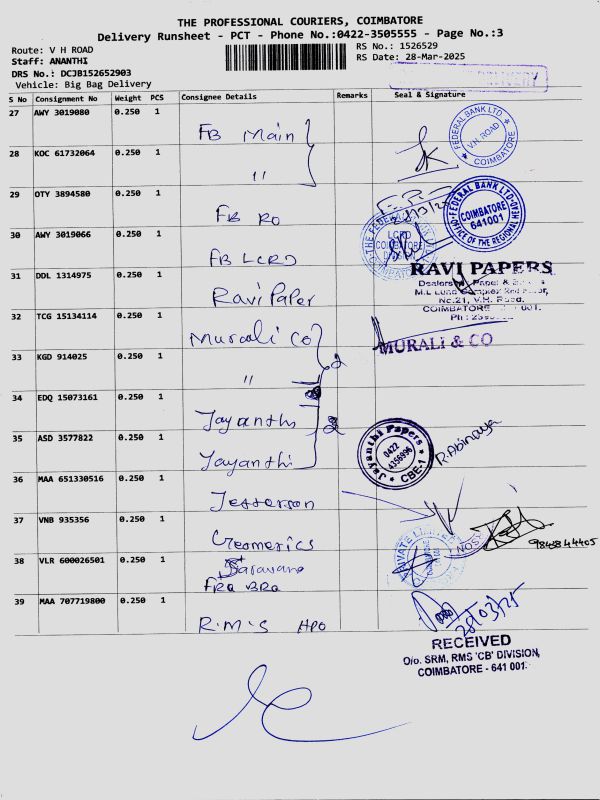 THE PROFESSIONAL COURIERS, COIMBATORE
Delivery Runsheet - PCT - Phone No.:0422-3505555 - Page No.:3
Route: V H ROAD
RS No.: 1526529
Staff: ANANTHI
RS Date: 28-Mar-2025
DRS No.: DCJB152652903
Vehicle: Big Bag Delivery
DELIVERY
S No Consignment No Weight PCS Consignee Details Remarks Seal & Signature
27 AWY 3019080 0.250 1 FB Main
FEDERAL BANK LTD
V.H. ROAD
COIMBATORE
28 KOC 61732064 0.250 1 "
29 OTY 3894580 0.250 1 FB RO
FEDERAL BANK LTD
COIMBATORE
641001
OFFICE OF THE REGIONAL HE
30 AWY 3019066 0.250 1 FB LCRD
THE FEDERAL BANK
LCRD
COIMBATORE
DIVISION
31 DDL 1314975 0.250 1 Ravi Paper
RAVI PAPERS
No.21, V.H. Road,
COIMBATORE
32 TCG 15134114 0.250 1 Murali Co
MURALI & CO
33 KGD 914025 0.250 1 "
34 EDQ 15073161 0.250 1 Jayanthi
35 ASD 3577822 0.250 1 Jayanthi
Jayanthi Papers
0422
4356996
CBE-1
R. Abinaya
36 MAA 651330516 0.250 1 Jefferson
37 VNB 935356 0.250 1 Geomerics
PRIVATE LIMITED
9848844405
38 VLR 600026501 0.250 1 Saravana
39 MAA 707719800 0.250 1 R.M.S HPO
28/03/25
RECEIVED
O/o. SRM, RMS 'CB' DIVISION,
COIMBATORE - 641 001.